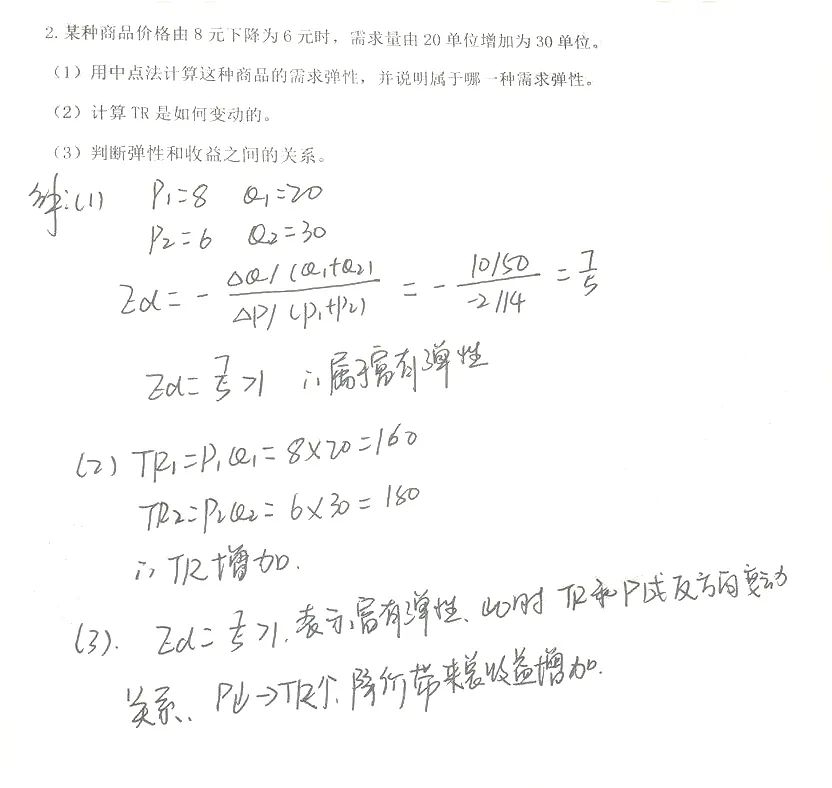 2. 某种商品价格由 8 元下降为 6 元时，需求量由 20 单位增加为 30 单位。
（1）用中点法计算这种商品的需求弹性，并说明属于哪一种需求弹性。
（2）计算 TR 是如何变动的。
（3）判断弹性和收益之间的关系。
解:(1) P₁=8 Q₁=20
P₂=6 Q₂=30
Ed= - ΔQ/(Q₁+Q₂) / ΔP/(P₁+P₂) = - 10/50 / -2/14 = 7/5
Ed= 7/5 >1 ∴属于富有弹性
(2) TR₁=P₁Q₁= 8×20=160
TR₂=P₂Q₂= 6×30= 180
∴ TR增加.
(3). Ed= 7/5 >1. 表示富有弹性、此时 TR和P成反方向变动
关系、P↓→TR↑. 降价带来总收益增加.